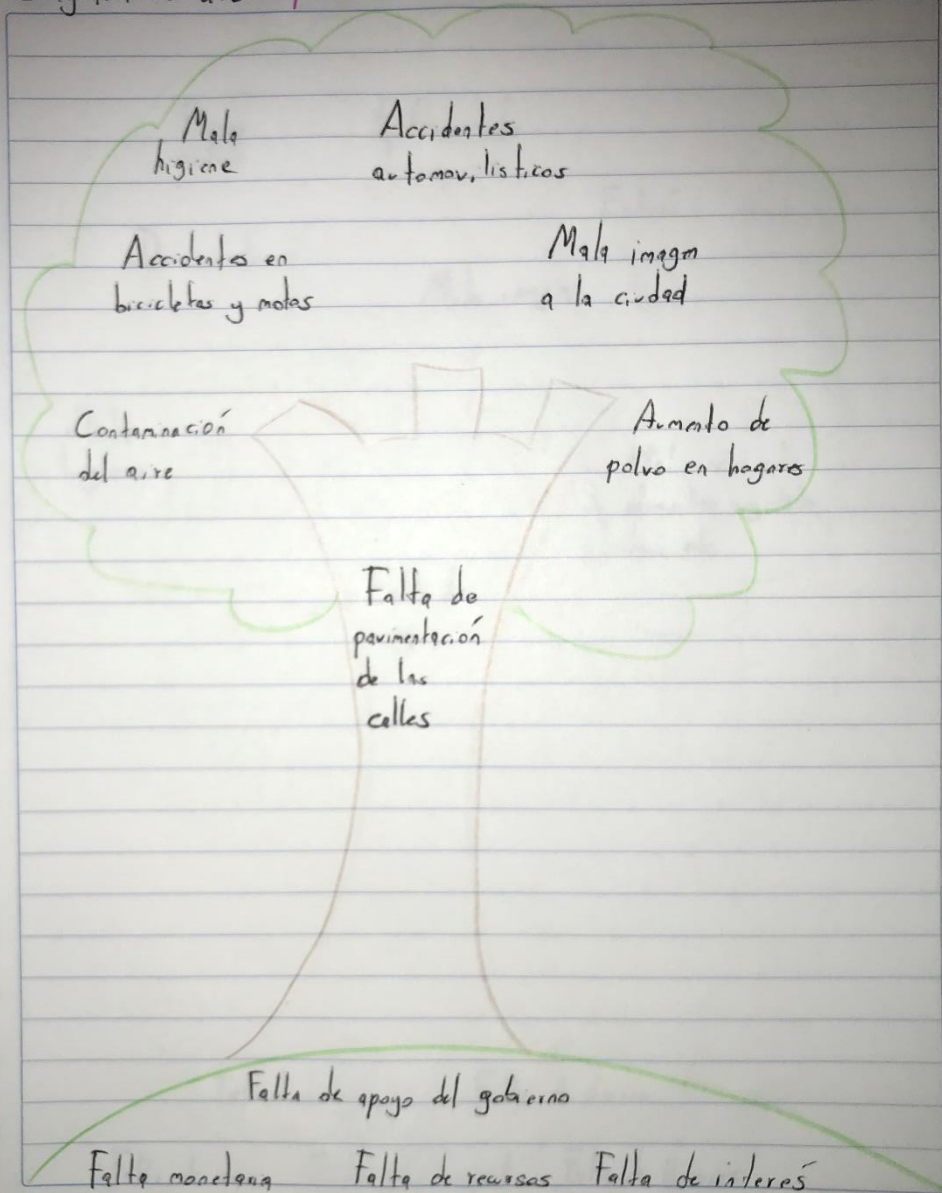 Mala
higiene
Accidentes
automovilísticos
Accidentes en
bicicletas y motos
Mala imagen
a la ciudad
Contaminación
del aire
Aumento de
polvo en hogares
Falta de
pavimentación
de las
calles
Falta de apoyo del gobierno
Falta monetaria
Falta de recursos
Falta de interés